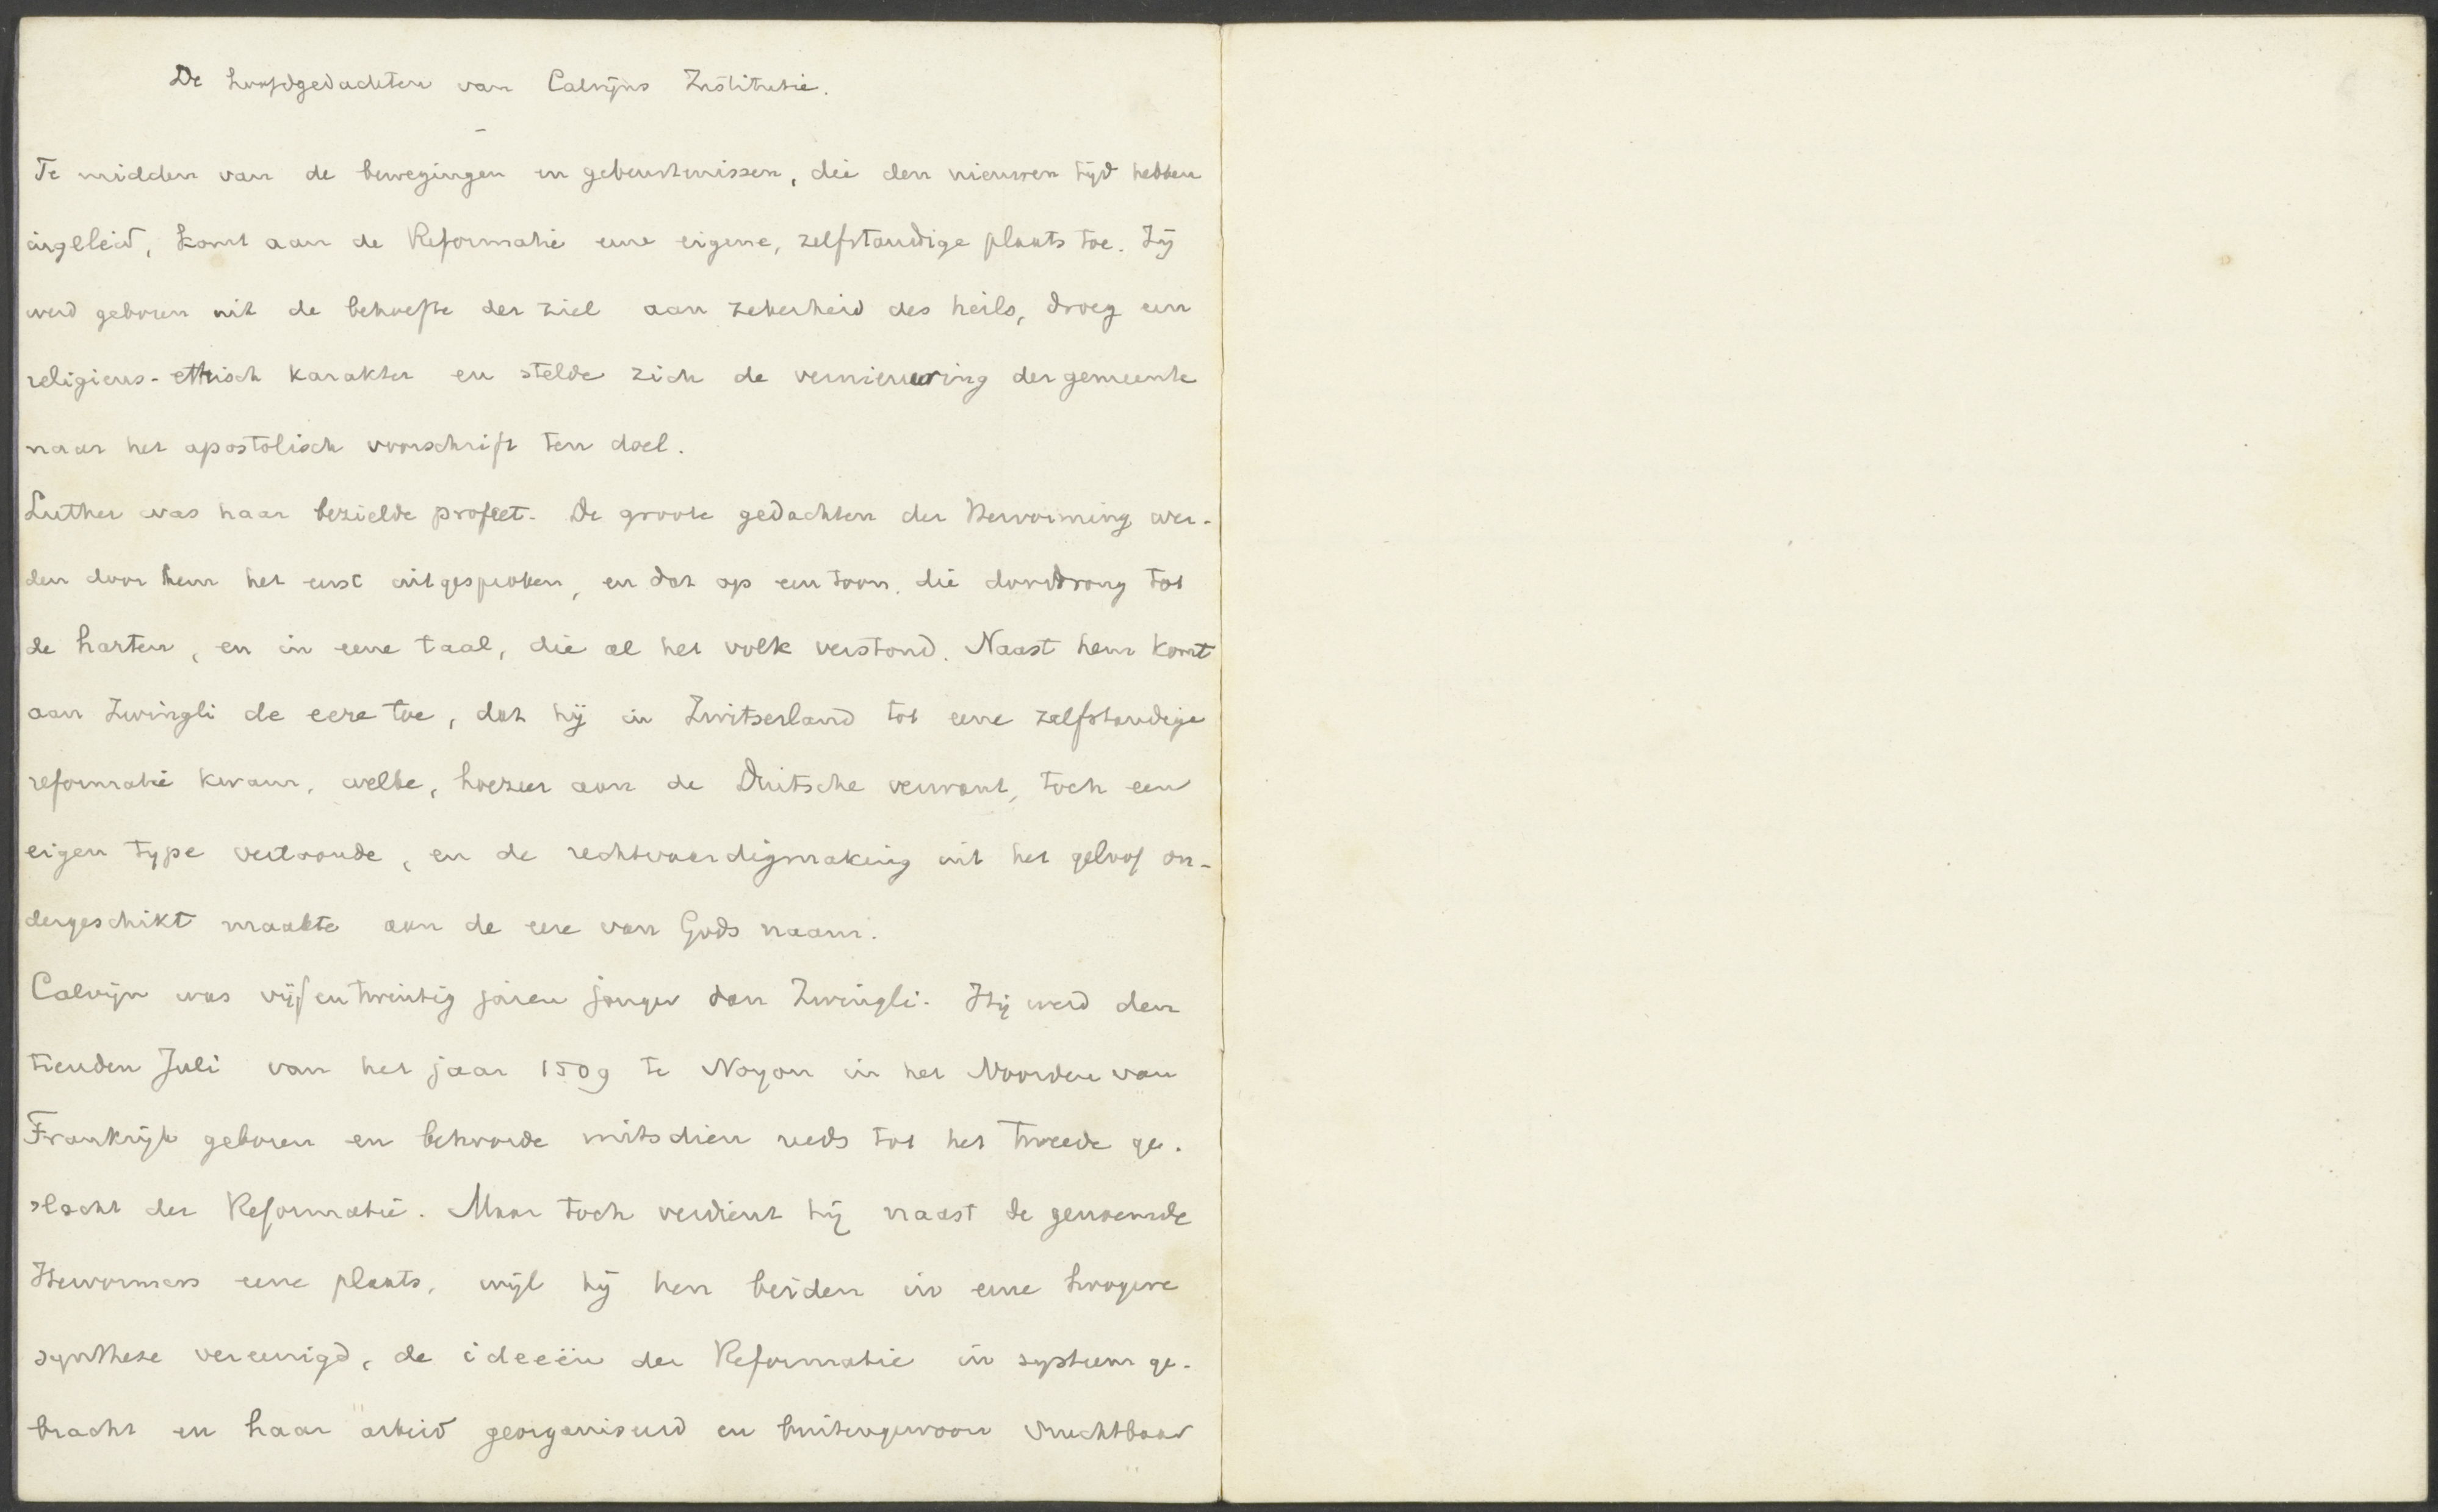 De hoofdgedachten van Calvijns Institutie.
Te midden van de bewegingen en gebeurtenissen, die den nieuwen tijd hebben
ingeleid, komt aan de Reformatie eene eigene, zelfstandige plaats toe. Zij
werd geboren uit de behoefte der ziel aan zekerheid des heils, droeg een
religieus-ethisch karakter en stelde zich de vernieuwing der gemeente
naar het apostolisch voorschrift ten doel.
Luther was haar bezielde profeet. De groote gedachten der Hervorming wer-
den door hem het eerst uitgesproken, en dat op een toon, die doordrong tot
de harten, en in eene taal, die al het volk verstond. Naast hem komt
aan Zwingli de eere toe, dat hij in Zwitserland tot eene zelfstandige
reformatie kwam, welke, hoezeer aan de Duitsche verwant, toch een
eigen type vertoonde, en de rechtvaardigmaking uit het geloof on-
dergeschikt maakte aan de eere van Gods naam.
Calvijn was vijfentwintig jaren jonger dan Zwingli. Hij werd den
tienden Juli van het jaar 1509 te Noyon in het Noorden van
Frankrijk geboren en behoorde mitsdien reeds tot het tweede ge-
slacht der Reformatie. Maar toch verdient hij naast de genoemde
Hervormers eene plaats, wijl hij hen beiden in eene hoogere
synthese vereenigd, de ideeën der Reformatie in systeem ge-
bracht en haar arbeid georganiseerd en buitengewoon vruchtbaar